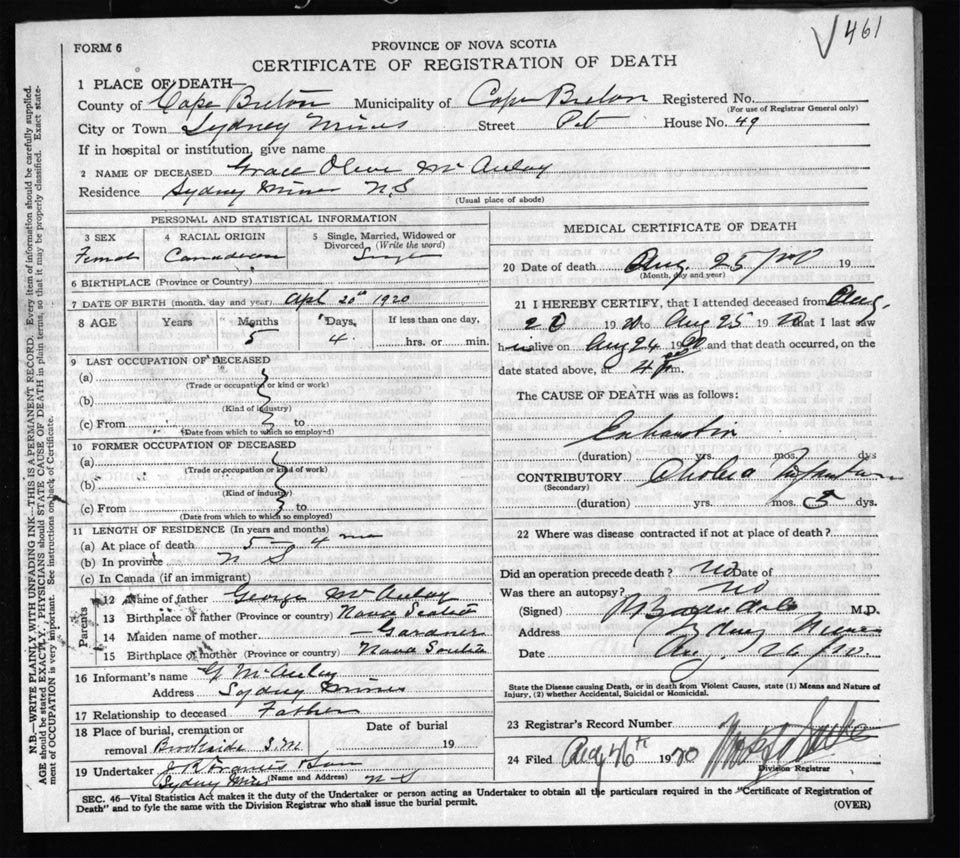 √461
FORM 6
PROVINCE OF NOVA SCOTIA
CERTIFICATE OF REGISTRATION OF DEATH
1 PLACE OF DEATH—
County of Cape Breton Municipality of Cape Breton Registered No.
(For use of Registrar General only)
City or Town Sydney Mines Street Pit House No. 49
If in hospital or institution, give name
2 NAME OF DECEASED Grace Olive McAulay
Residence Sydney Mines N.S
(Usual place of abode)
PERSONAL AND STATISTICAL INFORMATION
3 SEX 4 RACIAL ORIGIN 5 Single, Married, Widowed or Divorced (Write the word)
Female Canadian Single
6 BIRTHPLACE (Province or Country)
7 DATE OF BIRTH (month, day and year) Apl 20th 1920
8 AGE Years Months Days If less than one day,
5 4 hrs. or min.
9 LAST OCCUPATION OF DECEASED
(a)
(Trade or occupation or kind or work)
(b)
(Kind of industry)
(c) From to
(Date from which to which so employed)
10 FORMER OCCUPATION OF DECEASED
(a)
(Trade or occupation or kind of work)
(b)
(Kind of industry)
(c) From to
(Date from which to which so employed)
11 LENGTH OF RESIDENCE (In years and months)
(a) At place of death 5 – 4
(b) In province N S
(c) In Canada (if an immigrant)
Parents
12 Name of father George McAulay
13 Birthplace of father (Province or country) Nova Scotia
14 Maiden name of mother — Gardner
15 Birthplace of mother (Province or country) Nova Scotia
16 Informant's name G McAulay
Address Sydney Mines
17 Relationship to deceased Father
18 Place of burial, cremation or removal Date of burial
Brookside S.M. 19
19 Undertaker J R Francis & Son
(Name and Address)
Sydney Mines N-S
MEDICAL CERTIFICATE OF DEATH
20 Date of death Aug. 25/20 19
(Month, day and year)
21 I HEREBY CERTIFY, that I attended deceased from Aug.
19 20 to Aug 25 19 20 that I last saw
h alive on Aug 24 1920 and that death occurred, on the
date stated above, a 4 m.
The CAUSE OF DEATH was as follows:
Exhaustion
(duration) yrs. mos. dys
CONTRIBUTORY Cholera Infantum
(Secondary)
(duration) yrs. mos. 5 dys.
22 Where was disease contracted if not at place of death?
Did an operation precede death? no Date of
Was there an autopsy? no
(Signed) M.D.
Address Sydney Mines
Date Aug. 26/20
State the Disease causing Death, or in death from Violent Causes, state (1) Means and Nature of
Injury, (2) whether Accidental, Suicidal or Homicidal.
23 Registrar's Record Number
24 Filed Aug 19 20
Division Registrar
SEC. 46—Vital Statistics Act makes it the duty of the Undertaker or person acting as Undertaker to obtain all the particulars required in the "Certificate of Registration of
Death" and to fyle the same with the Division Registrar who shall issue the burial permit.
(OVER)
N.B.—WRITE PLAINLY, WITH UNFADING INK—THIS IS A PERMANENT RECORD. Every item of information should be carefully supplied.
AGE should be stated EXACTLY. PHYSICIANS should STATE CAUSE OF DEATH in plain terms, so that it may be properly classified. Exact state-
ment of OCCUPATION is very important. See instructions on back of Certificate.